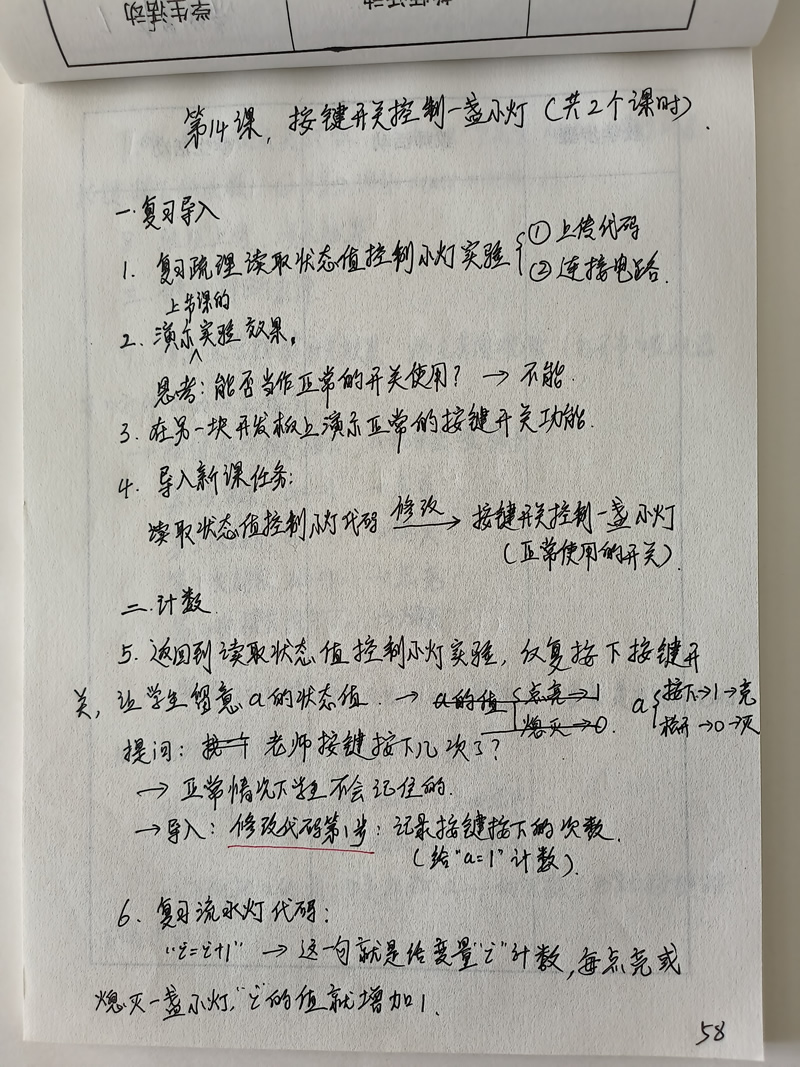 学生活动
第14课，按键开关控制一盏小灯（共2个课时）.
一.复习导入
1. 复习疏理读取状态值控制小灯实验 ①上传代码
②连接电路.
上节课的
2. 演示实验效果。
思考：能否当作正常的开关使用？→ 不能.
3. 在另一块开发板上演示正常的按键开关功能.
4. 导入新课任务：
读取状态值控制小灯代码 修改→ 按键开关控制一盏小灯
（正常使用的开关）.
二.计数.
5. 返回到读取状态值控制小灯实验，仅复按下按键开
关，让学生留意a的状态值. → a的值 点亮→1 a 按下→1→亮
熄灭→0. 松开→0→灭
提问： 老师按键按下几次了？
→ 正常情况下学生不会记住的.
→导入：修改代码第1步：记录按键按下的次数.
（给“a=1”计数）.
6. 复习流水灯代码：
“i=i+1” → 这一句就是给变量“i”计数，每点亮或
熄灭一盏小灯，“i”的值就增加1.
58